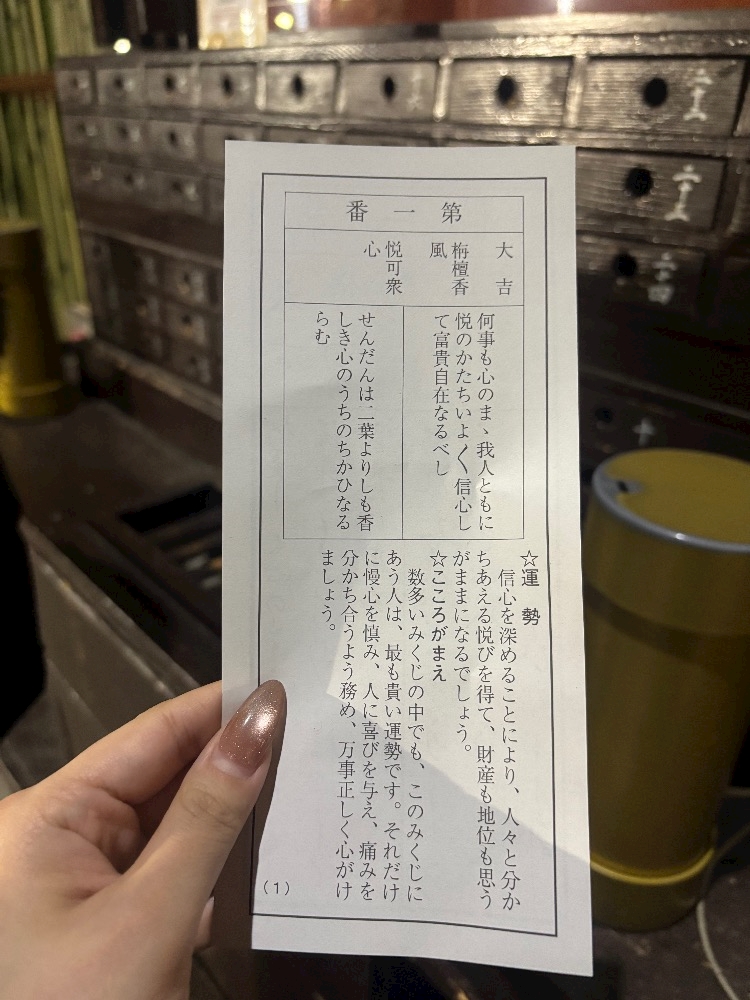 第一番
大吉
栴檀香
風
悦可衆
心
何事も心のまゝ我人ともに
悦のかたちいよ〱信心し
て富貴自在なるべし
せんだんは二葉よりしも香
しき心のうちのちかひなる
らむ
☆運 勢
信心を深めることにより、人々と分か
ちあえる悦びを得て、財産も地位も思う
がままになるでしょう。
☆こころがまえ
数多いみくじの中でも、このみくじに
あう人は、最も貴い運勢です。それだけ
に慢心を慎み、人に喜びを与え、痛みを
分かち合うよう務め、万事正しく心がけ
ましょう。
(1)